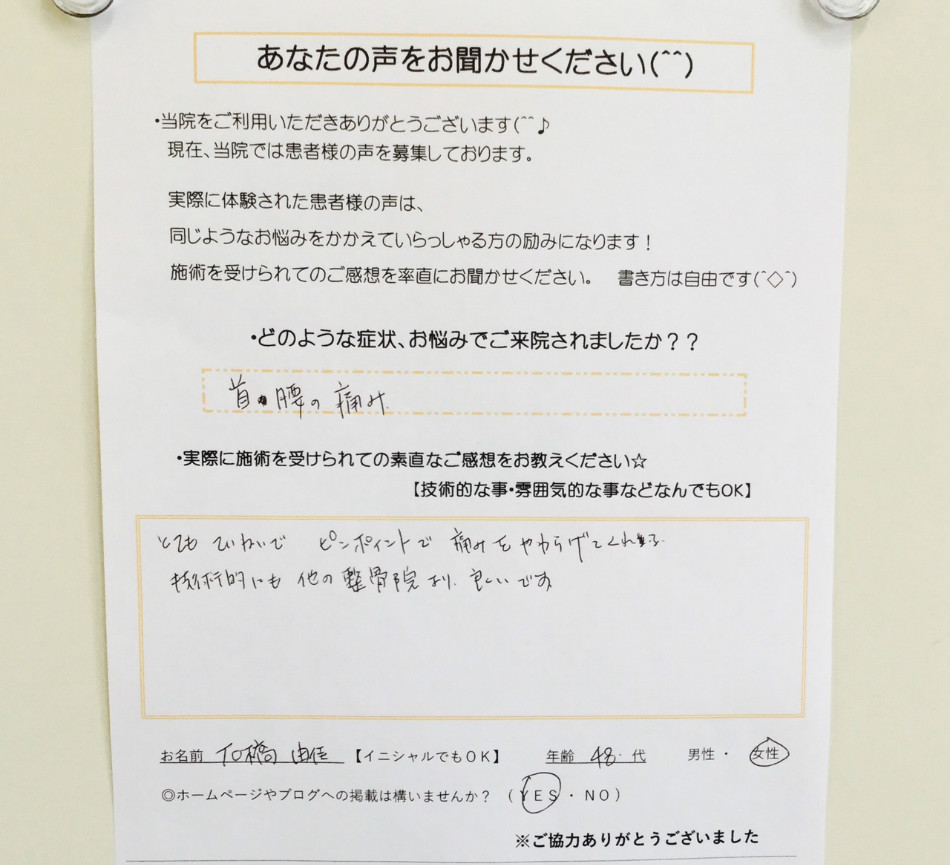 あなたの声をお聞かせください(^^)
・当院をご利用いただきありがとうございます(^^♪
現在、当院では患者様の声を募集しております。
実際に体験された患者様の声は、
同じようなお悩みをかかえていらっしゃる方の励みになります！
施術を受けられてのご感想を率直にお聞かせください。　書き方は自由です(^◇^)
・どのような症状、お悩みでご来院されましたか？？
首・腰の痛み
・実際に施術を受けられての素直なご感想をお教えください☆
【技術的な事・雰囲気的な事などなんでもOK】
とても ていねいで ピンポイントで 痛みをやわらげてくれる
技術的にも 他の整骨院より 良いです
お名前 石橋 由佳 【イニシャルでもOK】 年齢 48 代 男性 ・ 女性
◎ホームページやブログへの掲載は構いませんか？ (YES・NO)
※ご協力ありがとうございました